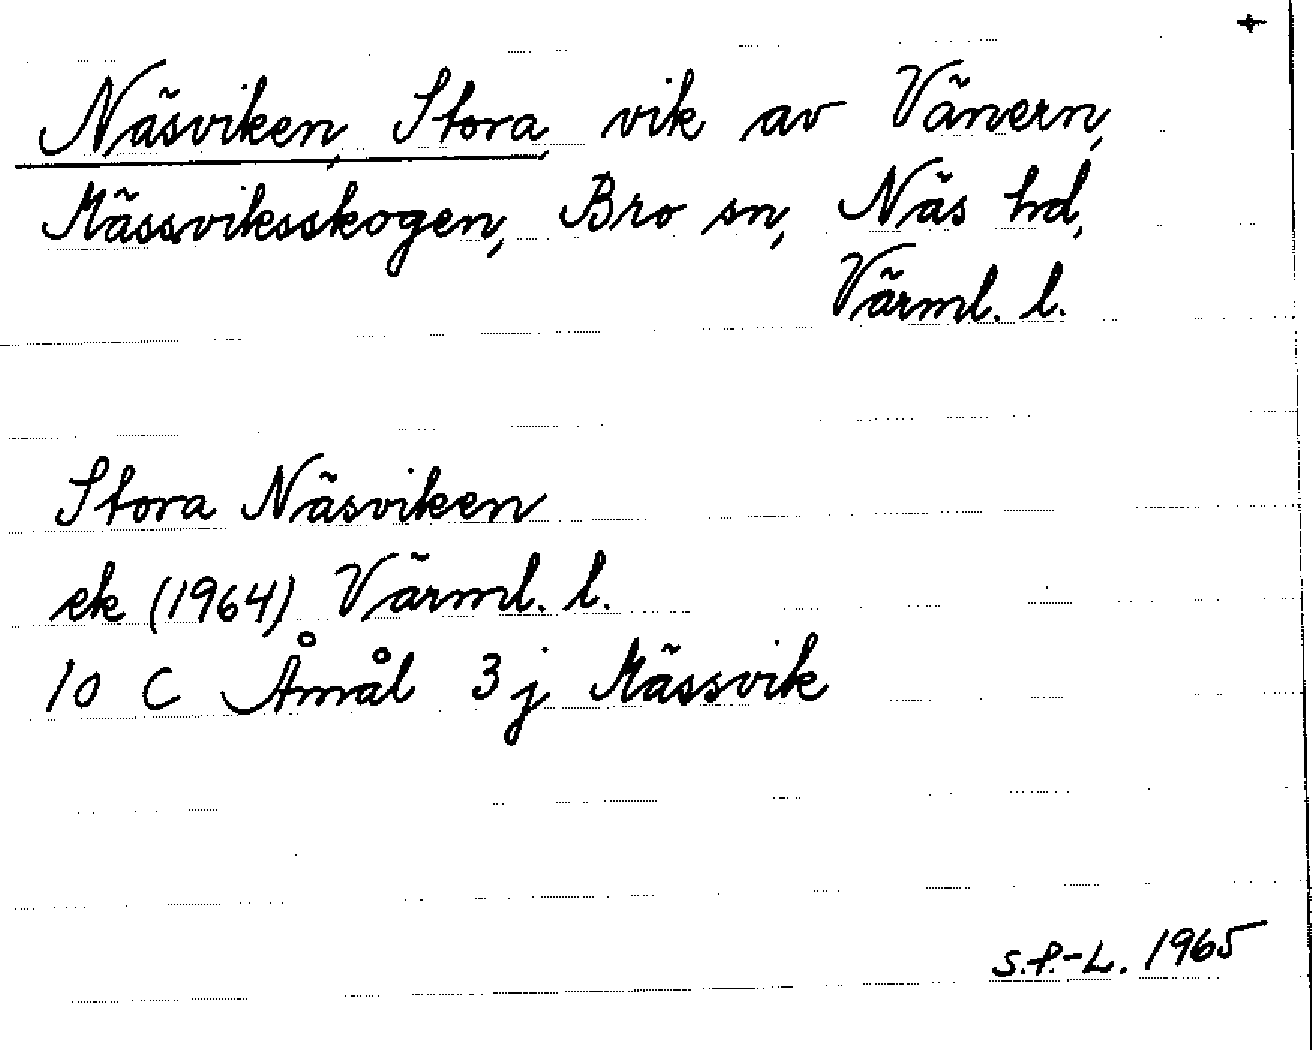 +
Näsviken, Stora, vik av Vänern,
Mässviksskogen, Bro sn, Näs hd,
Värml. l.
Stora Näsviken
ek (1964) Värml. l.
10 C Åmål 3 j Mässvik
S.P.-L. 1965